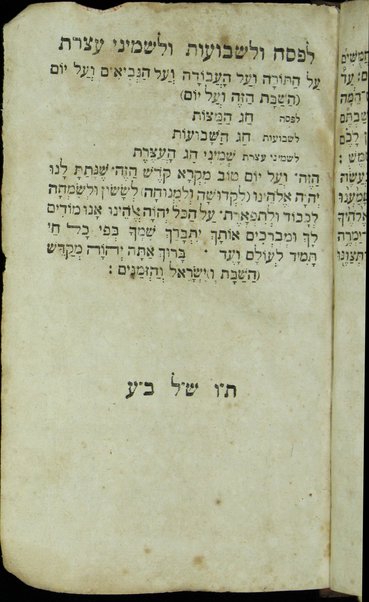 לפסח ולשבועות ולשמיני עצרת
עַל הַתּוֹרָה וְעַל הָעֲבוֹדָה וְעַל הַנְּבִיאִים וְעַל יוֹם
(הַשַּׁבָּת הַזֶּה וְעַל יוֹם)
לפסח חַג הַמַּצּוֹת
לשבועות חַג הַשָּׁבֻעוֹת
לשמיני עצרת שְׁמִינִי חַג הָעֲצֶרֶת
הַזֶּה וְעַל יוֹם טוֹב מִקְרָא קֹדֶשׁ הַזֶּה שֶׁנָּתַתָּ לָּנוּ
יְהוָה אֱלֹהֵינוּ (לִקְדוּשָּׁה וְלִמְנוּחָה) לְשָׂשׂוֹן וּלְשִׂמְחָה
לְכָבוֹד וּלְתִפְאָרֶת עַל הַכֹּל יְהוָה אֱלֹהֵינוּ אָנוּ מוֹדִים
לָךְ וּמְבָרְכִים אוֹתָךְ יִתְבָּרַךְ שִׁמְךָ בְּפִי כָל חַי
תָּמִיד לְעוֹלָם וָעֶד בָּרוּךְ אַתָּה יְהוָה מְקַדֵּשׁ
(הַשַּׁבָּת וְ)יִשְׂרָאֵל וְהַזְּמַנִּים:
ת״ו ש״ל ב״ע